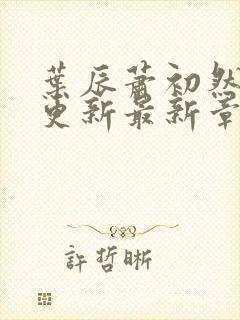 葉辰蕭初然
更新最新章
許哲晰